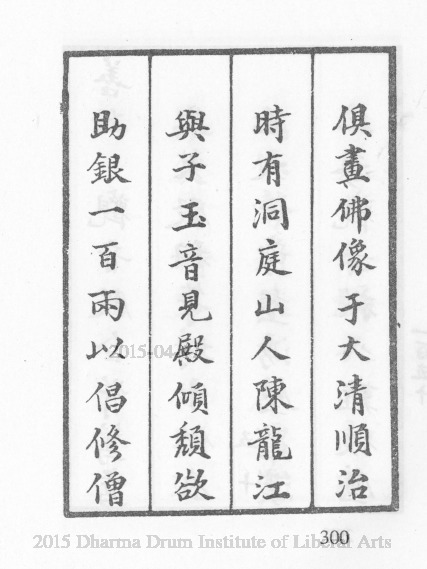 俱畫佛像于大清順治
時有洞庭山人陳龍江
與子玉音見殿傾頹欲
助銀一百兩以倡修僧
300
2015 Dharma Drum Institute of Liberal Arts